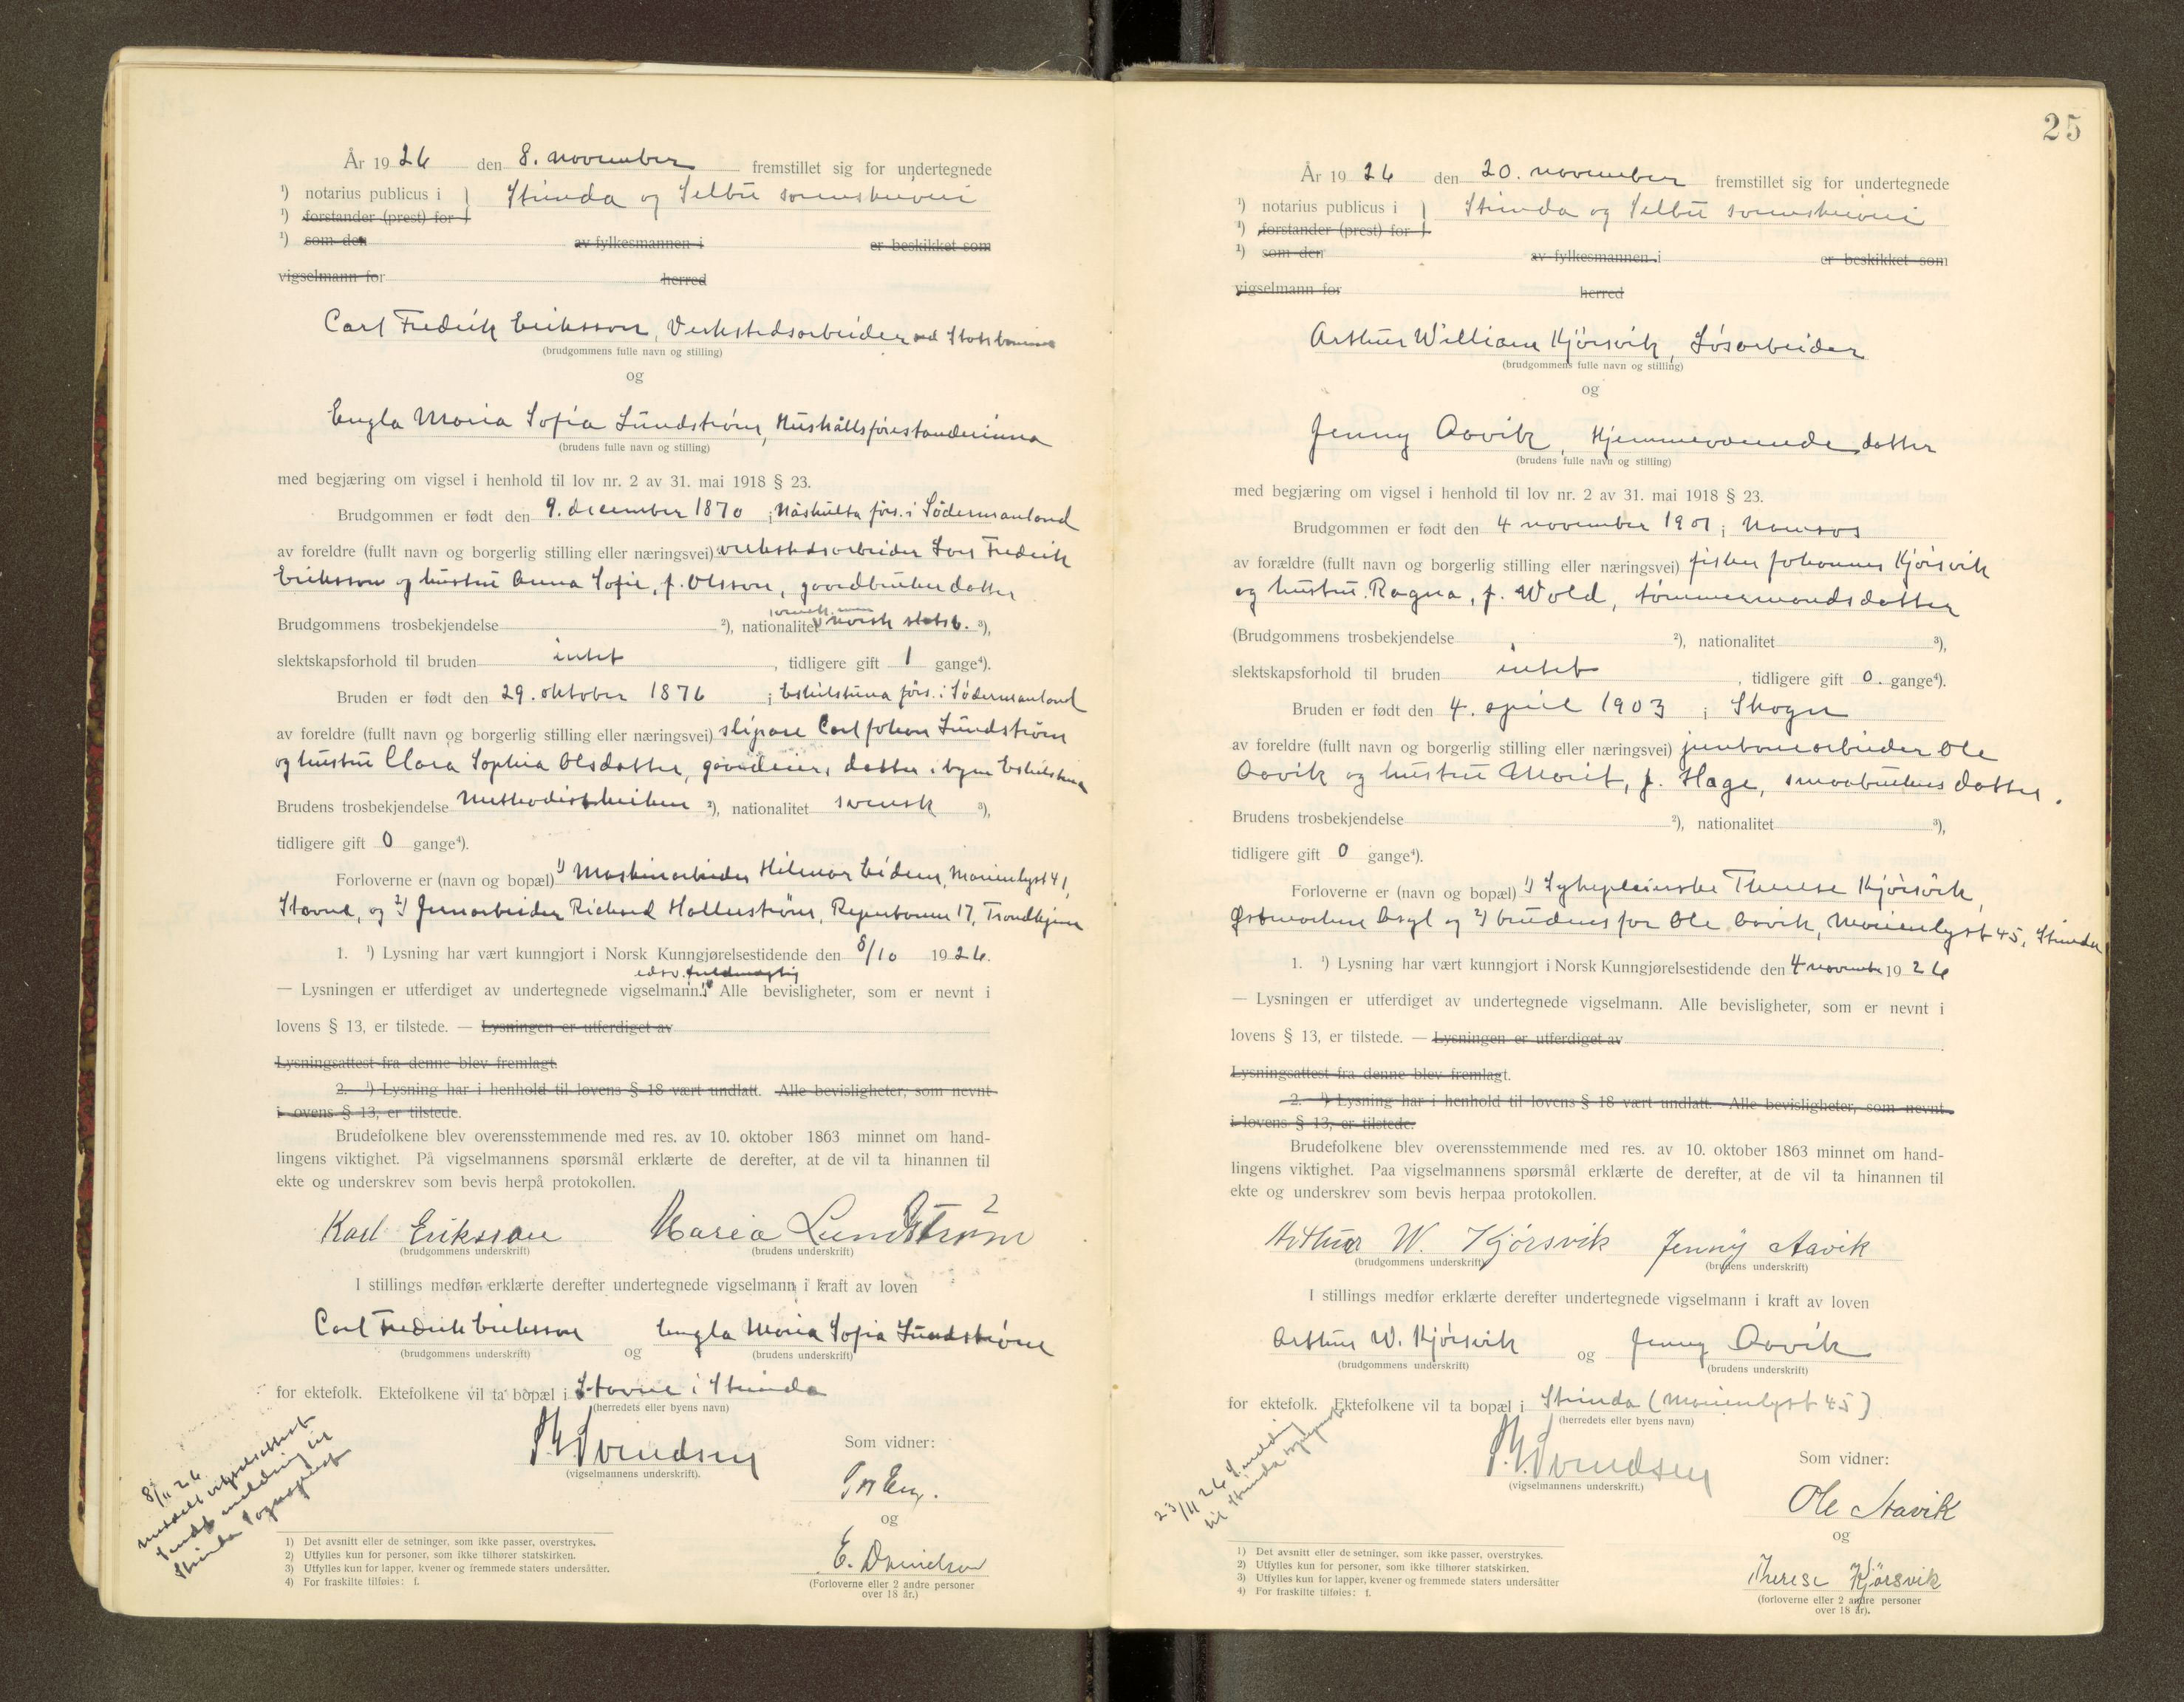 År 1926 den 8. november fremstillet sig for undertegnede
¹) notarius publicus i } Strinda og Selbu sorenskriveri
¹) forstander (prest) for }
¹) som den av fylkesmannen i er beskikket som
vigselmann for herred
Carl Fredrik Eriksson, Verkstedsarbeider ved Statsbanene
(brudgommens fulle navn og stilling)
og
Engla Maria Sofia Lundstrøm, Hushållsförestanderinna
(brudens fulle navn og stilling)
med begjæring om vigsel i henhold til lov nr. 2 av 31. mai 1918 § 23.
Brudgommen er født den 9. december 1870 i Näshulta förs. i Södermanland
av foreldre (fullt navn og borgerlig stilling eller næringsvei) verkstedsarbeider Lars Fredrik
Eriksson og hustru Anna Sofie, f. Olsson, gaardbrukerdatter
svensk, men
Brudgommens trosbekjendelse ²), nationalitet norsk statsb. ³),
slektskapsforhold til bruden intet , tidligere gift 1 gange⁴).
Bruden er født den 29. oktober 1876 i Eskilstuna förs. i Södermanland
av foreldre (fullt navn og borgerlig stilling eller næringsvei) slipare Carl Johan Lundstrøm
og hustru Clara Sophia Olsdatter, gaardeiers datter i byen Eskilstuna
Brudens trosbekjendelse Methodistkirken ²), nationalitet svensk ³),
tidligere gift 0 gange⁴).
Forloverne er (navn og bopæl) ¹) Maskinarbeider Hilmar Eidem, Marienlyst 41,
Stavne, og ²) Jernarbeider Richard Hallerstrøm, Reperbanen 17, Trondhjem
1. ¹) Lysning har vært kunngjort i Norsk Kunngjørelsestidende den 8/10 1926.
edsv. fuldmægtig
— Lysningen er utferdiget av undertegnede vigselmann. Alle bevisligheter, som er nevnt i
lovens § 13, er tilstede. — Lysningen er utferdiget av
Lysningsattest fra denne blev fremlagt.
2. ¹) Lysning har i henhold til lovens § 18 vært undlatt. Alle bevisligheter, som nevnt
i lovens § 13, er tilstede.
Brudefolkene blev overensstemmende med res. av 10. oktober 1863 minnet om hand-
lingens viktighet. På vigselmannens spørsmål erklærte de derefter, at de vil ta hinannen til
ekte og underskrev som bevis herpå protokollen.
Karl Eriksson Maria Lundstrøm
(brudgommens underskrift) (brudens underskrift)
I stillings medfør erklærte derefter undertegnede vigselmann i kraft av loven
Carl Fredrik Eriksson og Engla Maria Sofia Lundstrøm
(brudgommens underskrift) (brudens underskrift)
for ektefolk. Ektefolkene vil ta bopæl i Stavne i Strinda
(herredets eller byens navn)
Svendsen
(vigselmannens underskrift).
Som vidner:
og
E. Danielsen
(Forloverne eller 2 andre personer
over 18 år.)
8/11 26
meddelt vigselsattest
Sendt melding til
Strinda sogneprest
1) Det avsnitt eller de setninger, som ikke passer, overstrykes.
2) Utfylles kun for personer, som ikke tilhører statskirken.
3) Utfylles kun for lapper, kvener og fremmede staters undersåtter.
4) For fraskilte tilføies: f.
25
År 1926 den 20. november fremstillet sig for undertegnede
¹) notarius publicus i } Strinda og Selbu sorenskriveri
¹) forstander (prest) for }
¹) som den av fylkesmannen i er beskikket som
vigselmann for herred
Arthur William Kjørsvik, Løsarbeider
(brudgommens fulle navn og stilling)
og
Jenny Aavik, Hjemmeværende datter
(brudens fulle navn og stilling)
med begjæring om vigsel i henhold til lov nr. 2 av 31. mai 1918 § 23.
Brudgommen er født den 4 november 1901 i Namsos
av forældre (fullt navn og borgerlig stilling eller næringsvei) fisker Johannes Kjørsvik
og hustru Ragna, f. Wold, tømmermandsdatter
(Brudgommens trosbekjendelse ²), nationalitet ³),
slektskapsforhold til bruden intet , tidligere gift 0. gange⁴).
Bruden er født den 4. april 1903 i Skogn
av foreldre (fullt navn og borgerlig stilling eller næringsvei) jernbanearbeider Ole
Aavik og hustru Marit, f. Hage, smaabrukers datter.
Brudens trosbekjendelse ²), nationalitet ³),
tidligere gift 0 gange⁴).
Forloverne er (navn og bopæl) ¹) Sykepleierske Therese Kjørsvik,
Østmarken Asyl og ²) brudens far Ole Aavik, Marienlyst 45, Strinda
1. ¹) Lysning har vært kunngjort i Norsk Kunngjørelsestidende den 4 november 1926
— Lysningen er utferdiget av undertegnede vigselmann. Alle bevisligheter, som er nevnt i
lovens § 13, er tilstede. — Lysningen er utferdiget av
Lysningsattest fra denne blev fremlagt.
2. ¹) Lysning har i henhold til lovens § 18 vært undlatt. Alle bevisligheter, som nevnt
i lovens § 13, er tilstede.
Brudefolkene blev overensstemmende med res. av 10. oktober 1863 minnet om hand-
lingens viktighet. Paa vigselmannens spørsmål erklærte de derefter, at de vil ta hinannen til
ekte og underskrev som bevis herpaa protokollen.
Arthur W. Kjørsvik Jenny Aavik
(brudgommens underskrift) (brudens underskrift)
I stillings medfør erklærte derefter undertegnede vigselmann i kraft av loven
Arthur W. Kjørsvik og Jenny Aavik
(brudgommens underskrift) (brudens underskrift)
for ektefolk. Ektefolkene vil ta bopæl i Strinda (Marienlyst 45)
(herredets eller byens navn)
Svendsen
(vigselmannens underskrift.)
Som vidner:
Ole Aavik
og
Therese Kjørsvik
(forloverne eller 2 andre personer
over 18 år).
23/11 26 S. melding
til Strinda sogneprest
1) Det avsnitt eller de setninger, som ikke passer, overstrykes.
2) Utfylles kun for personer, som ikke tilhører statskirken.
3) Utfylles kun for lapper, kvener og fremmede staters undersåtter
4) For fraskilte tilføies: f.